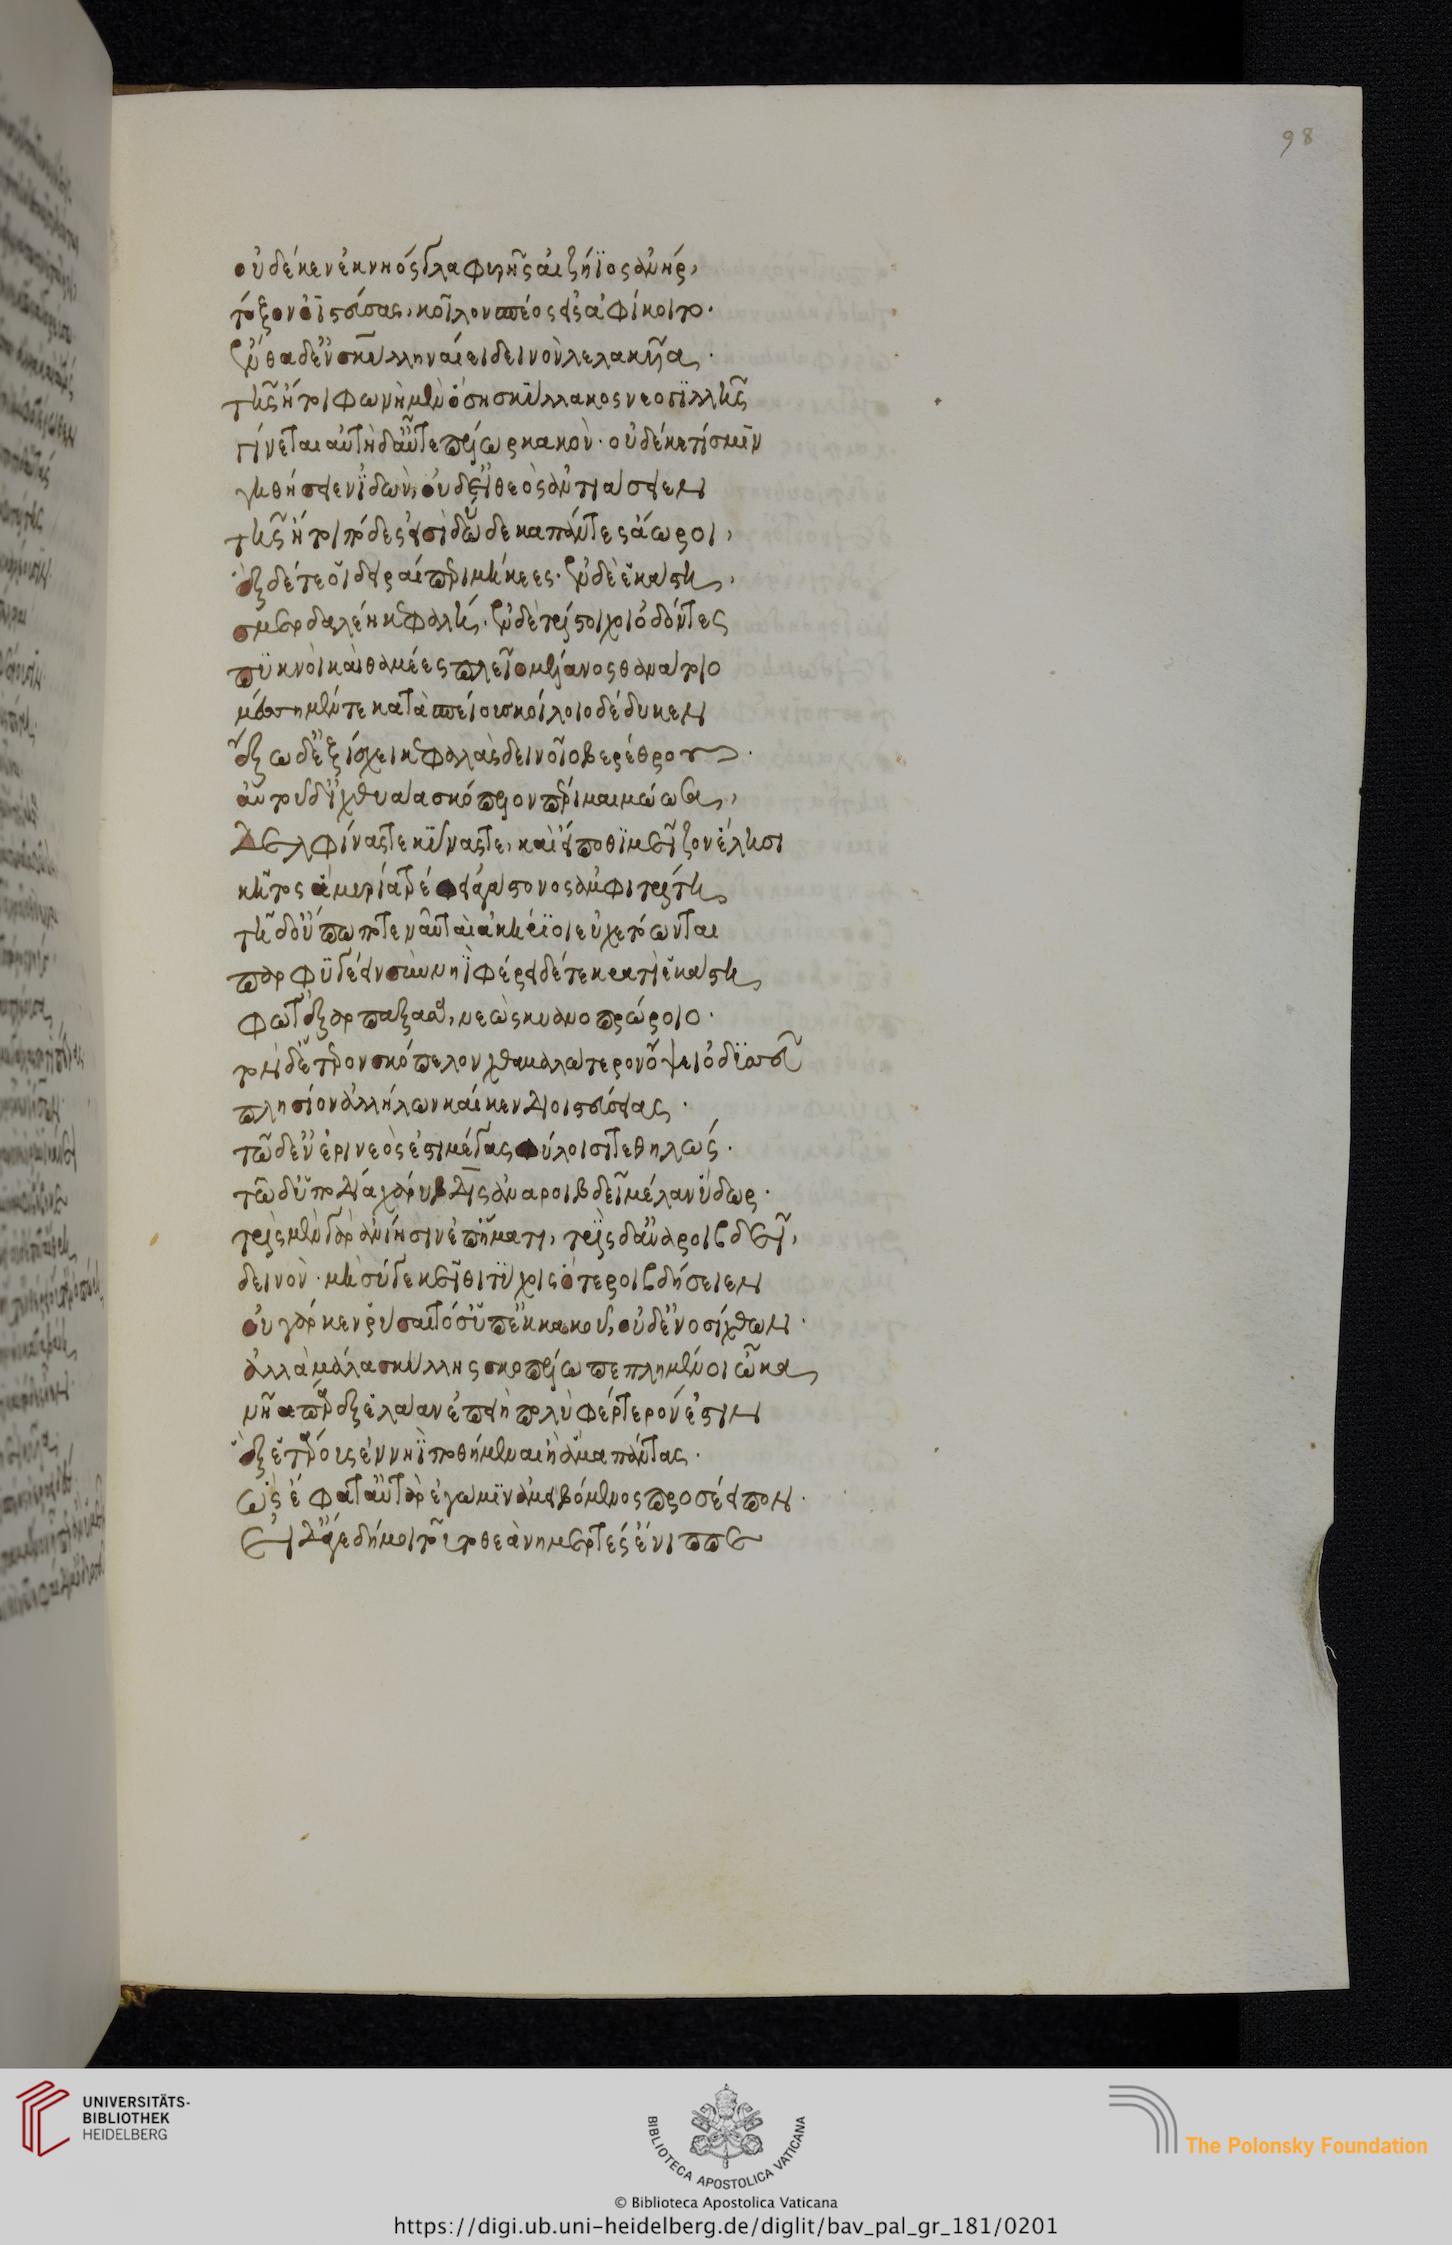 98
οὐδέ κεν ἐκ νηός γλαφυρῆς αἰζήϊος ἀνήρ,
τόξον ὀϊστεύσας, κοῖλον σπέος εἰσαφίκοιτο.
ἔνθα δ' ἐν σκύλλη ναίει δεινὸν λελακυῖα.
τῆς ἤτοι φωνὴ μὲν ὅση σκύλλακος νεογιλλῆς
γίνεται αὐτὴ δ' αὖτε πέλωρ κακὸν. οὐδέ κε τίς μιν
γηθήσειεν ἰδὼν, οὐδ' εἰ θεὸς ἀντιάσειεν
τῆς ἤτοι πόδες εἰσὶ δυώδεκα πάντες ἄωροι,
ἓξ δέ τε οἱ δειραὶ περιμήκεες. ἐν δὲ ἑκάστη,
σμερδαλέη κεφαλή. ἐν δὲ τρίστοιχοι ὀδόντες
πυκνοὶ καὶ θαμέες πλεῖοι μέλανος θανάτοιο
μέσση μέν τε κατὰ σπείους κοίλοιο δέδυκεν
ἔξω δ' ἐξίσχει κεφαλὰς δεινοῖο βερέθρου.
αὐτοῦ δ' ἰχθυάα σκόπελον περιμαιμώωσα,
δελφίνάς τε κύνας τε, καὶ εἴ ποθι μεῖζον ἕλησι
κῆτος ἃ μυρία βόσκει ἀγάστονος ἀμφιτρίτη
τῆ δ' οὔ πώποτε ναῦται ἀκήριοι εὐχετόωνται
παρφυγέειν σὺν νηῒ φέρει δέ τε κρατὶ ἑκάστη
φῶτ' ἐξαρπάξασα, νεὼς κυανοπρώροιο.
τὸν δ' ἕτερον σκόπελον χθαμαλώτερον ὄψει ὀδυσσεῦ
πλησίον ἀλλήλων καί κεν διοϊστεύσειας.
τῶ δ' ἐν ἐρινεὸς ἐστὶ μέγας φύλοισι τεθηλώς.
τῶ δ' ὑπο δῖα χάρυβδις ἀναροιβδεῖ μέλαν ὕδωρ.
τρὶς μὲν γάρ ἀνίησιν ἐπ' ἤματι, τρὶς δ' ἀναροιβδεῖ,
δεινὸν. μὴ σύγε κεῖθι τύχοις ὅτε ροιβδήσειεν
οὐ γάρ κεν ῥύσαιτό σ' ὑπ' ἐκ κακοῦ, οὐδ' ἐνοσίχθων.
ἀλλὰ μάλα σκύλλης σκοπέλω πεπλημένος ὦκα
νῆα παρὲξ ἐλάαν ἐπειὴ πολὺ φέρτερόν ἐστιν
ἓξ ἑτάρους ἐν νηῒ ποθήμεναι ἢ ἅμα πάντας.
ὣς ἔφατ' αὐτὰρ ἐγώ μιν ἀμειβόμενος προσέειπον.
εἰ δ' ἄγε δή μοι τοῦτο θεὰ νημερτές ἐνίσπες
UNIVERSITÄTS-
BIBLIOTHEK
HEIDELBERG
BIBLIOTECA APOSTOLICA VATICANA
© Biblioteca Apostolica Vaticana
The Polonsky Foundation
https://digi.ub.uni-heidelberg.de/diglit/bav_pal_gr_181/0201